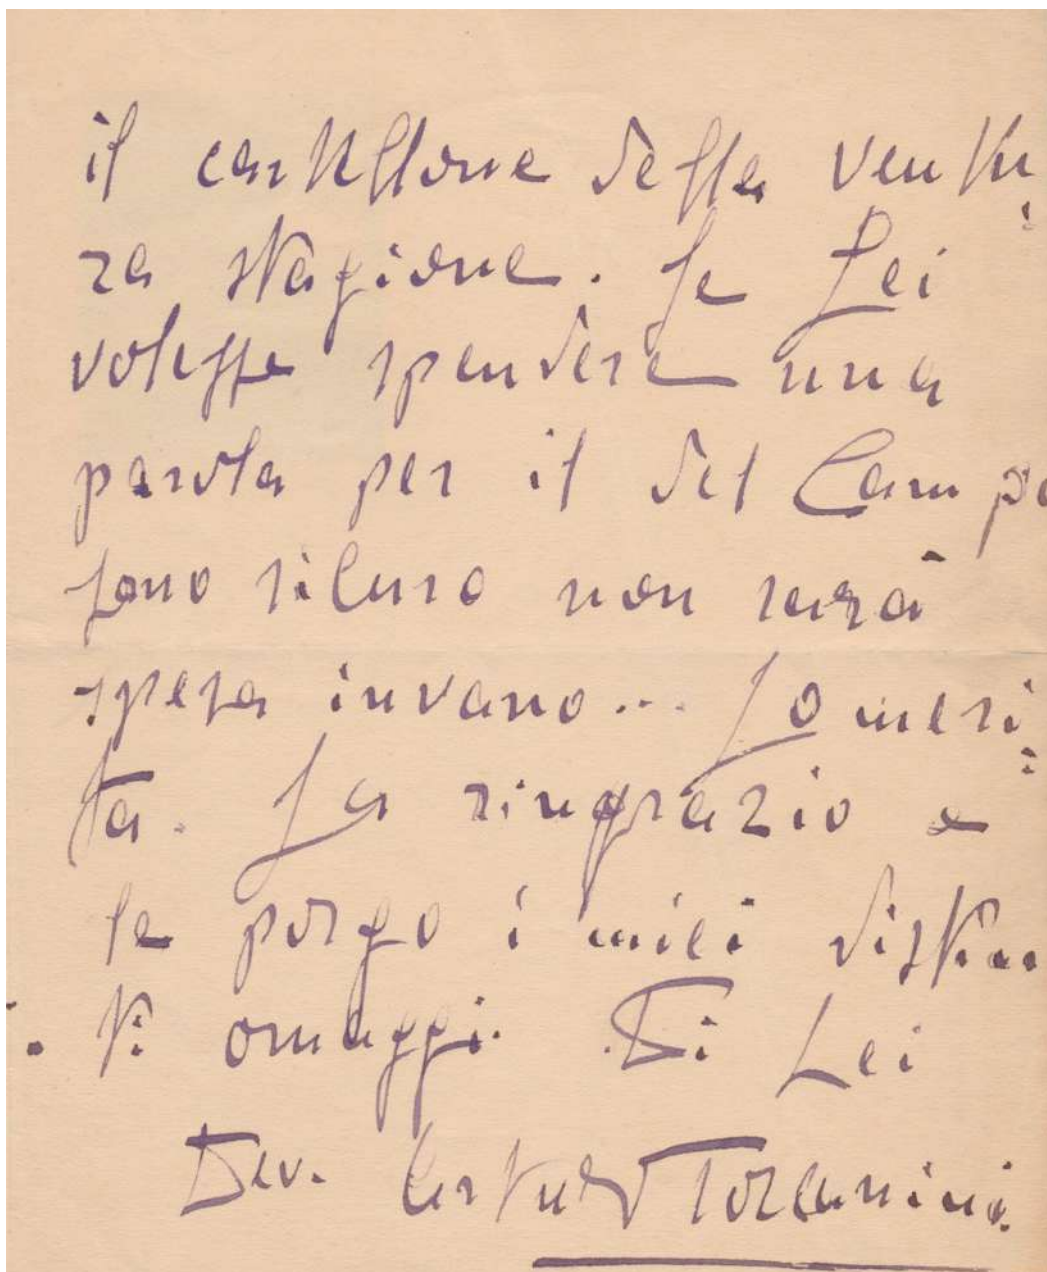 il cartellone della ventu
ra stagione. Se Lei
volesse spendere una
parola per il del Campo
sono sicuro non sarà
spesa invano... Lo meri:
ta. La ringrazio e
le porgo i miei distin
ti omaggi. Di Lei
Dev. Arturo Toscanini